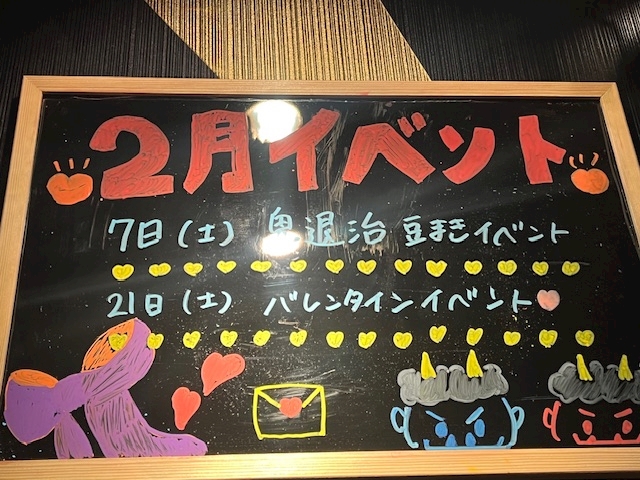 2月イベント
7日(土) 鬼退治 豆まきイベント
21日(土) バレンタインイベント